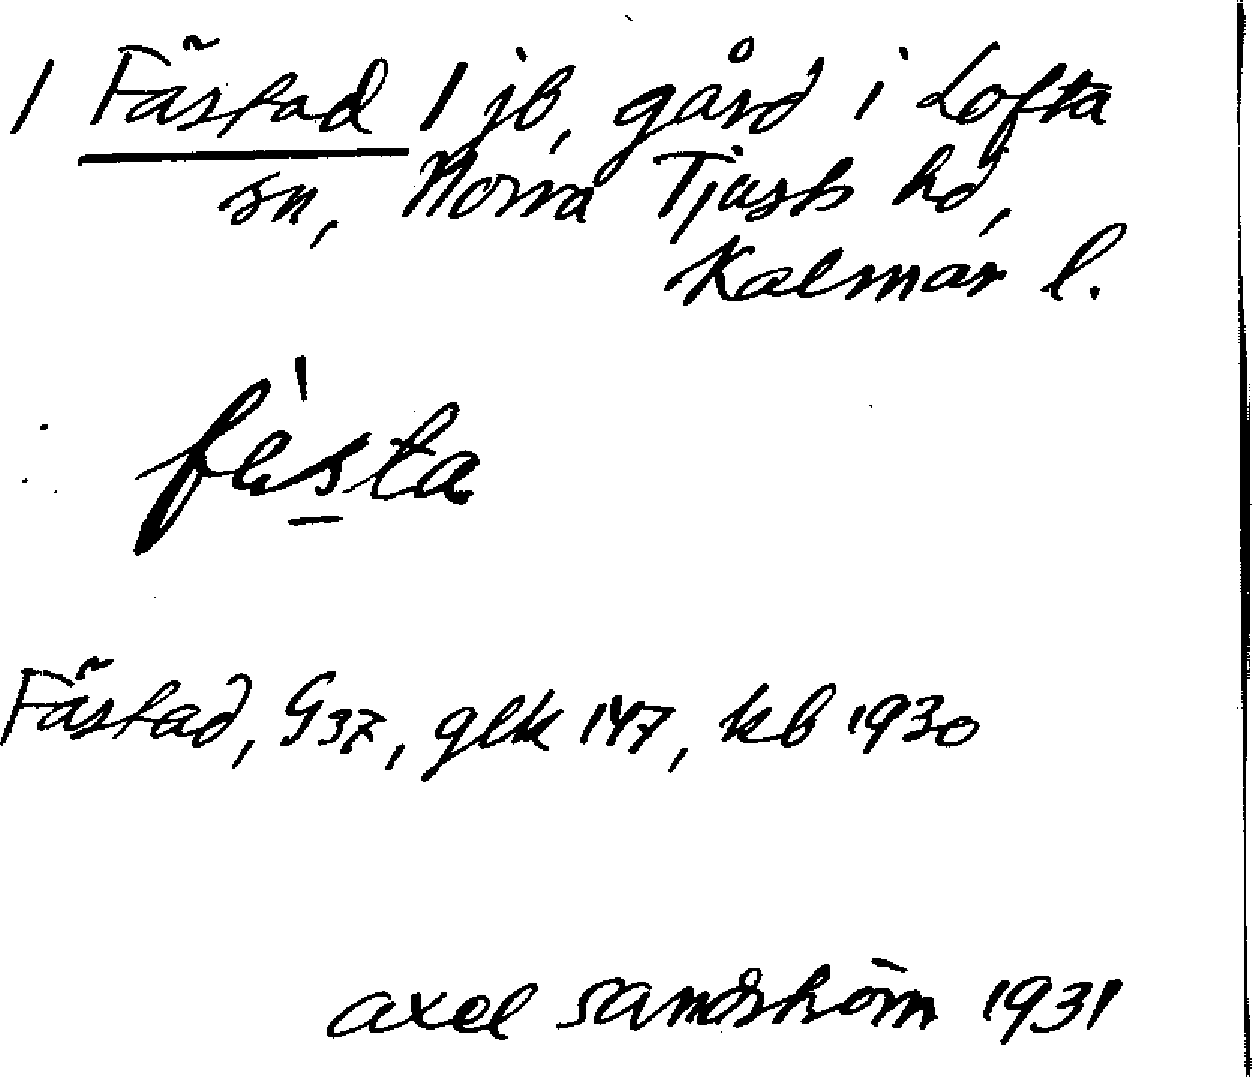 1 Fästad 1 jb, gård i Lofta
sn, Norra Tjusts hd,
Kalmar l.
fe̠sta
Fästad, G37, glk 147, kb 1930
axel sandström 1931